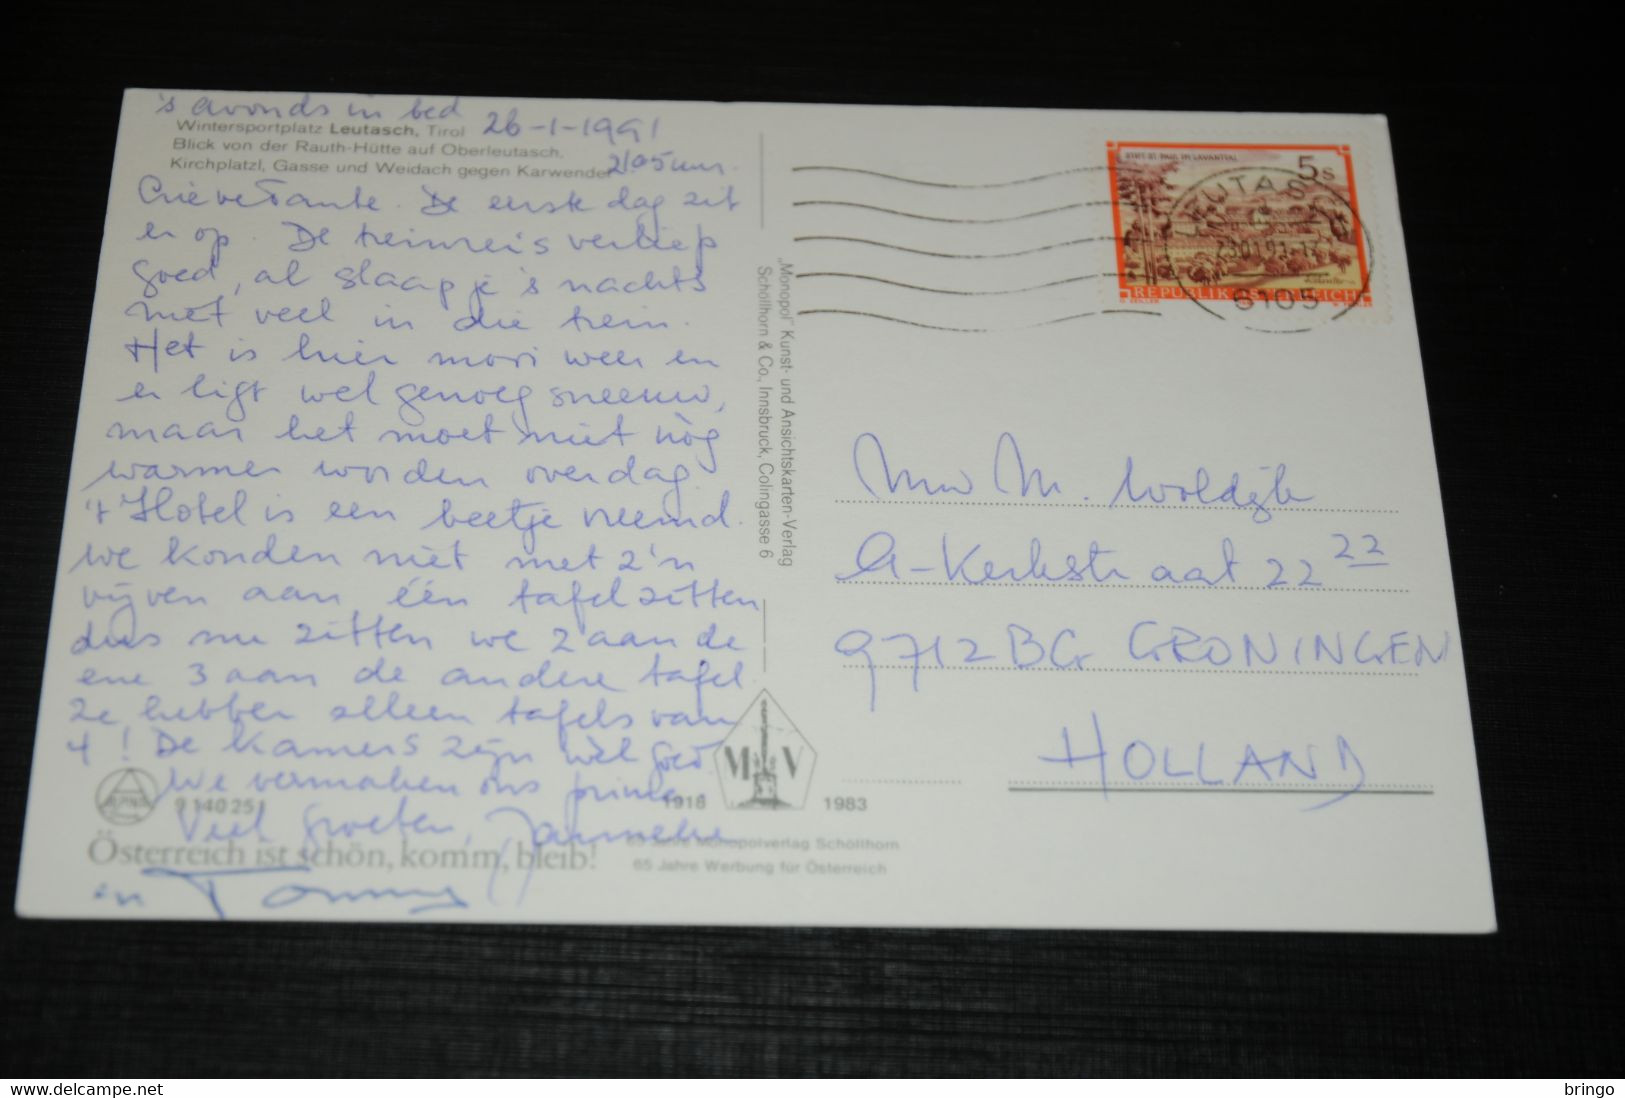 's avonds in bed
26-1-1991
Wintersportplatz Leutasch, Tirol
Blick von der Rauth-Hütte auf Oberleutasch,
Kirchplatzl, Gasse und Weidach gegen Karwendel
21.05 uur.
Lieve Tante. De eerste dag zit
er op. De treinreis verliep
goed, al slaap je 's nachts
niet veel in die trein.
Het is hier mooi weer en
er ligt wel genoeg sneeuw,
maar het moet niet nòg
warmer worden overdag.
't Hotel is een beetje vreemd.
we konden niet met z'n
vijven aan één tafel zitten
dus nu zitten we 2 aan de
ene 3 aan de andere tafel.
Ze hebben alleen tafels van
4! De kamers zijn wèl goed
We vermaken ons prima.
Veel groeten, Janneke
en Tommy
ALPINA
9 14025
Österreich ist schön, komm, bleib!
65 Jahre Monopolverlag Schöllhorn
65 Jahre Werbung für Österreich
M V
1918 1983
„Monopol" Kunst- und Ansichtskarten-Verlag
Schöllhorn & Co., Innsbruck, Colingasse 6
STIFT ST. PAUL IM LAVANTTAL
5s
REPUBLIK ÖSTERREICH
LEUTASCH
6105
Mw M.
A-Kerkstraat 22 22
9712BG GRONINGEN
HOLLAND
bringo
delcampe.net